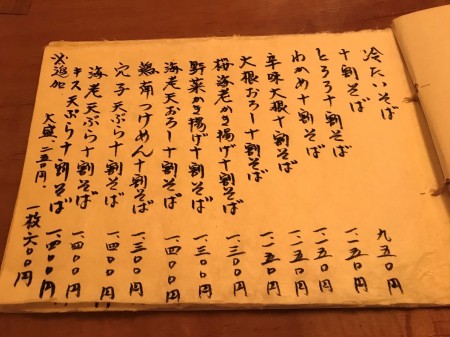 冷たいそば
十割そば 九五〇円
とろろ十割そば 一、一五〇円
わかめ十割そば 一、一五〇円
辛味大根十割そば 一、一五〇円
大根おろし十割そば 一、一五〇円
梅海老かき揚げ十割そば 一、三〇〇円
野菜かき揚げ十割そば 一、三〇〇円
海老天おろし十割そば 一、四〇〇円
鶏南つけめん十割そば 一、三〇〇円
穴子天ぷら十割そば 一、四〇〇円
海老天ぷら十割そば 一、四〇〇円
キス天ぷら十割そば 一、四〇〇円
※追加 大盛二五〇円、一枚六〇〇円